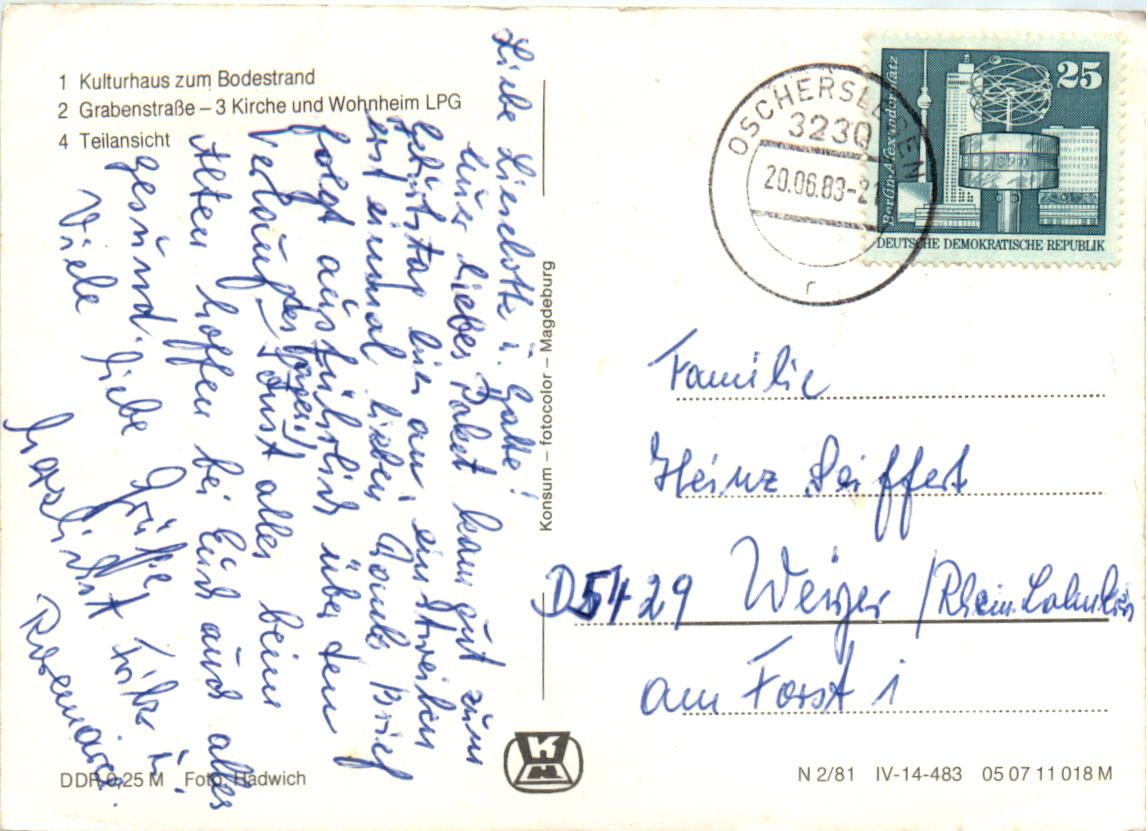 1 Kulturhaus zum Bodestrand
2 Grabenstraße – 3 Kirche und Wohnheim LPG
4 Teilansicht
Liebe Lieselotte u.
Euer liebes Paket kam gut zum
Geburtstag hier an, einstweilen
erst einmal lieben Dank, Brief
folgt ausführlich über den
Verlauf des Tages! Sonst alles beim
Alten hoffen bei Euch auch alles
gesund.
Viele liebe Grüße,
Fritz u.
Rosemarie.
DDR 0,25 M Foto: Hadwich
Konsum – fotocolor – Magdeburg
OSCHERSLEBEN
3230
20.06.83-21
r
Berlin-Alexanderplatz
25
DEUTSCHE DEMOKRATISCHE REPUBLIK
Familie
Heinz Seiffert
D5429 Weyer /Rhein-Lahnkreis
am Forst 1
K
N 2/81 IV-14-483 05 07 11 018 M